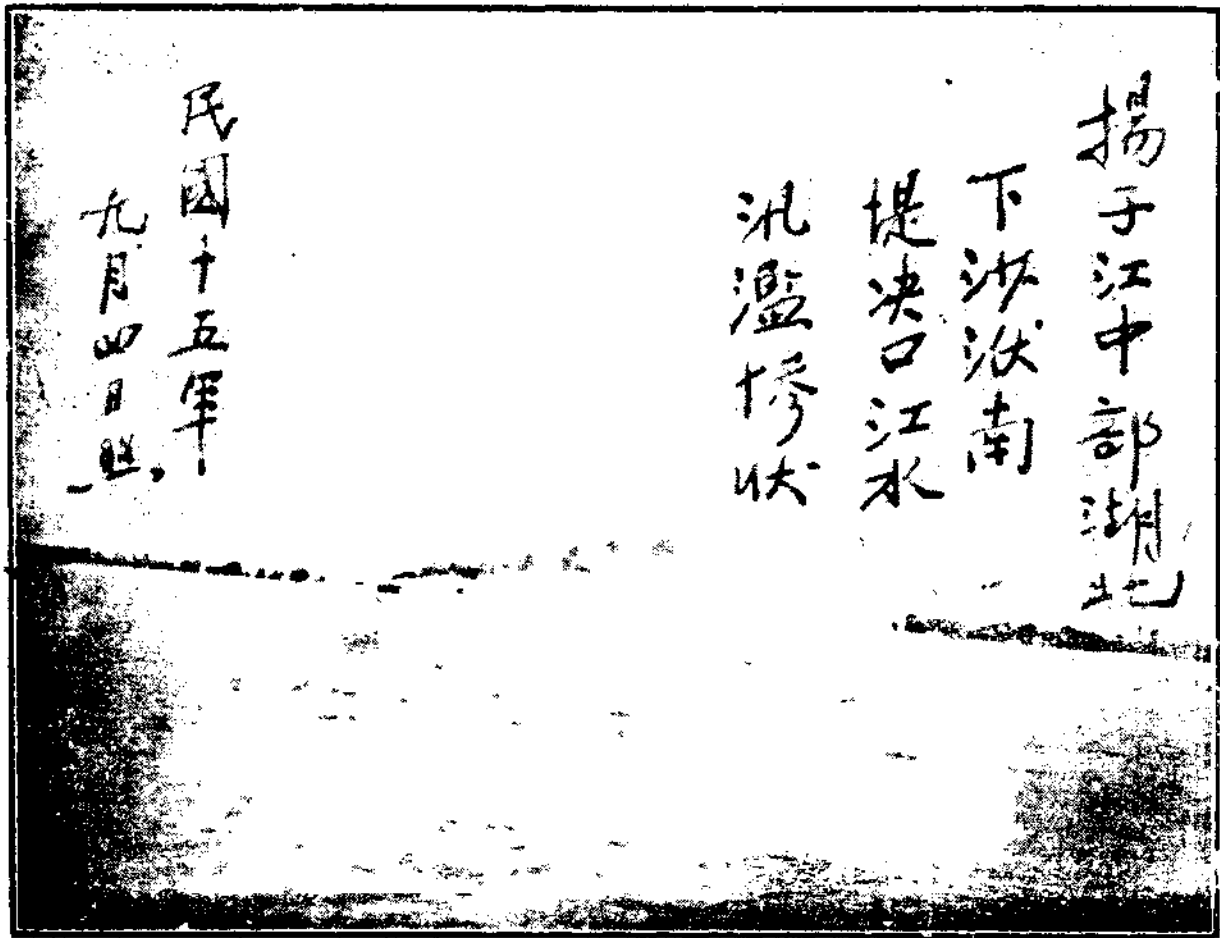 揚子江中部湖北
下沙洑南
堤决口江水
汎濫慘状
民國十五年
九月四日照